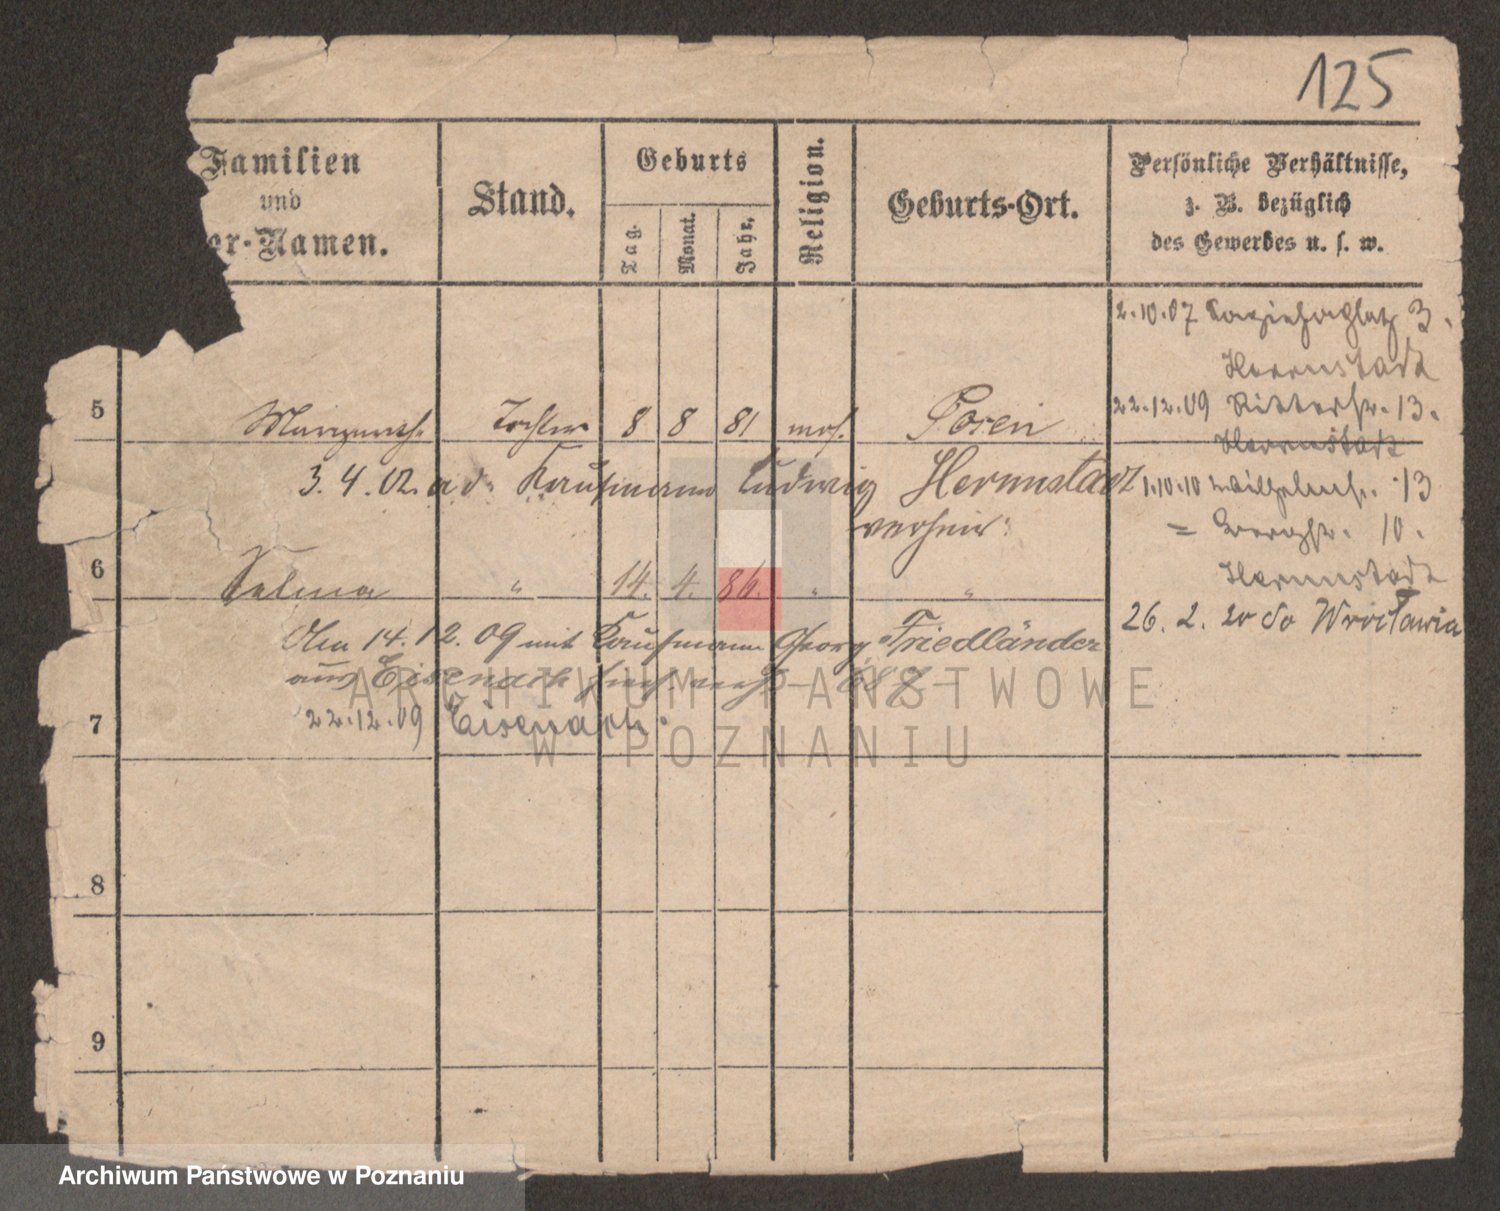 125
Familien
und
er-Namen.
Stand.
Geburts
Tag.
Monat.
Jahr.
Religion.
Geburts-Ort.
Persönliche Verhältnisse,
z. B. bezüglich
des Gewerbes u. s. w.
2.10.07 3.
Herrnstadt
5 Tochter 8 8 81 mos. Posen
22.12.09 Ritterstr. 13.
Herrnstadt
3.4.02. a d. Kaufmann Ludwig Herrnstadt
verheir.
1.10.10 Wilhelmstr. 13
= Bergstr. 10.
Herrnstadt
6 Selma " 14. 4. 86. " "
26. 2. 20 do Wrocławia
14.12.09 mit Kaufmann Georg Friedländer
aus Eisenach
7 22.12.09 Eisenach.
8
9
ARCHIWUM PAŃSTWOWE
W POZNANIU
Archiwum Państwowe w Poznaniu